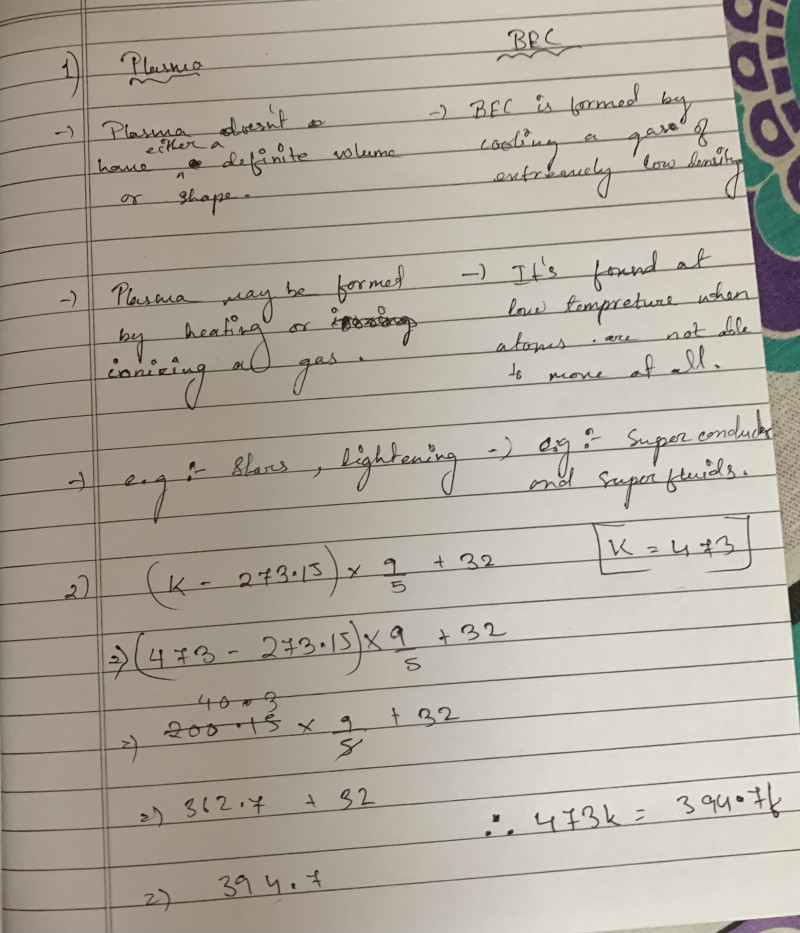 1) Plasma BEC
-) Plasma doesn't
either a
have definite volume
or shape.
-) BEC is formed by
cooling a gas of
extremely low density
-) Plasma may be formed
by heating or
ionizing a gas.
-) It's found at
low tempreture when
atoms are not able
to move at all.
-) e.g :- Stars, lightening
-) e.g :- Super conductor
and super fluids.
2) (K - 273.15) × 9/5 + 32 K = 473
=) (473 - 273.15) × 9/5 + 32
40.3
=) 200.15 × 9/5 + 32
=) 362.7 + 32
=) 394.7
∴ 473k = 394.7f